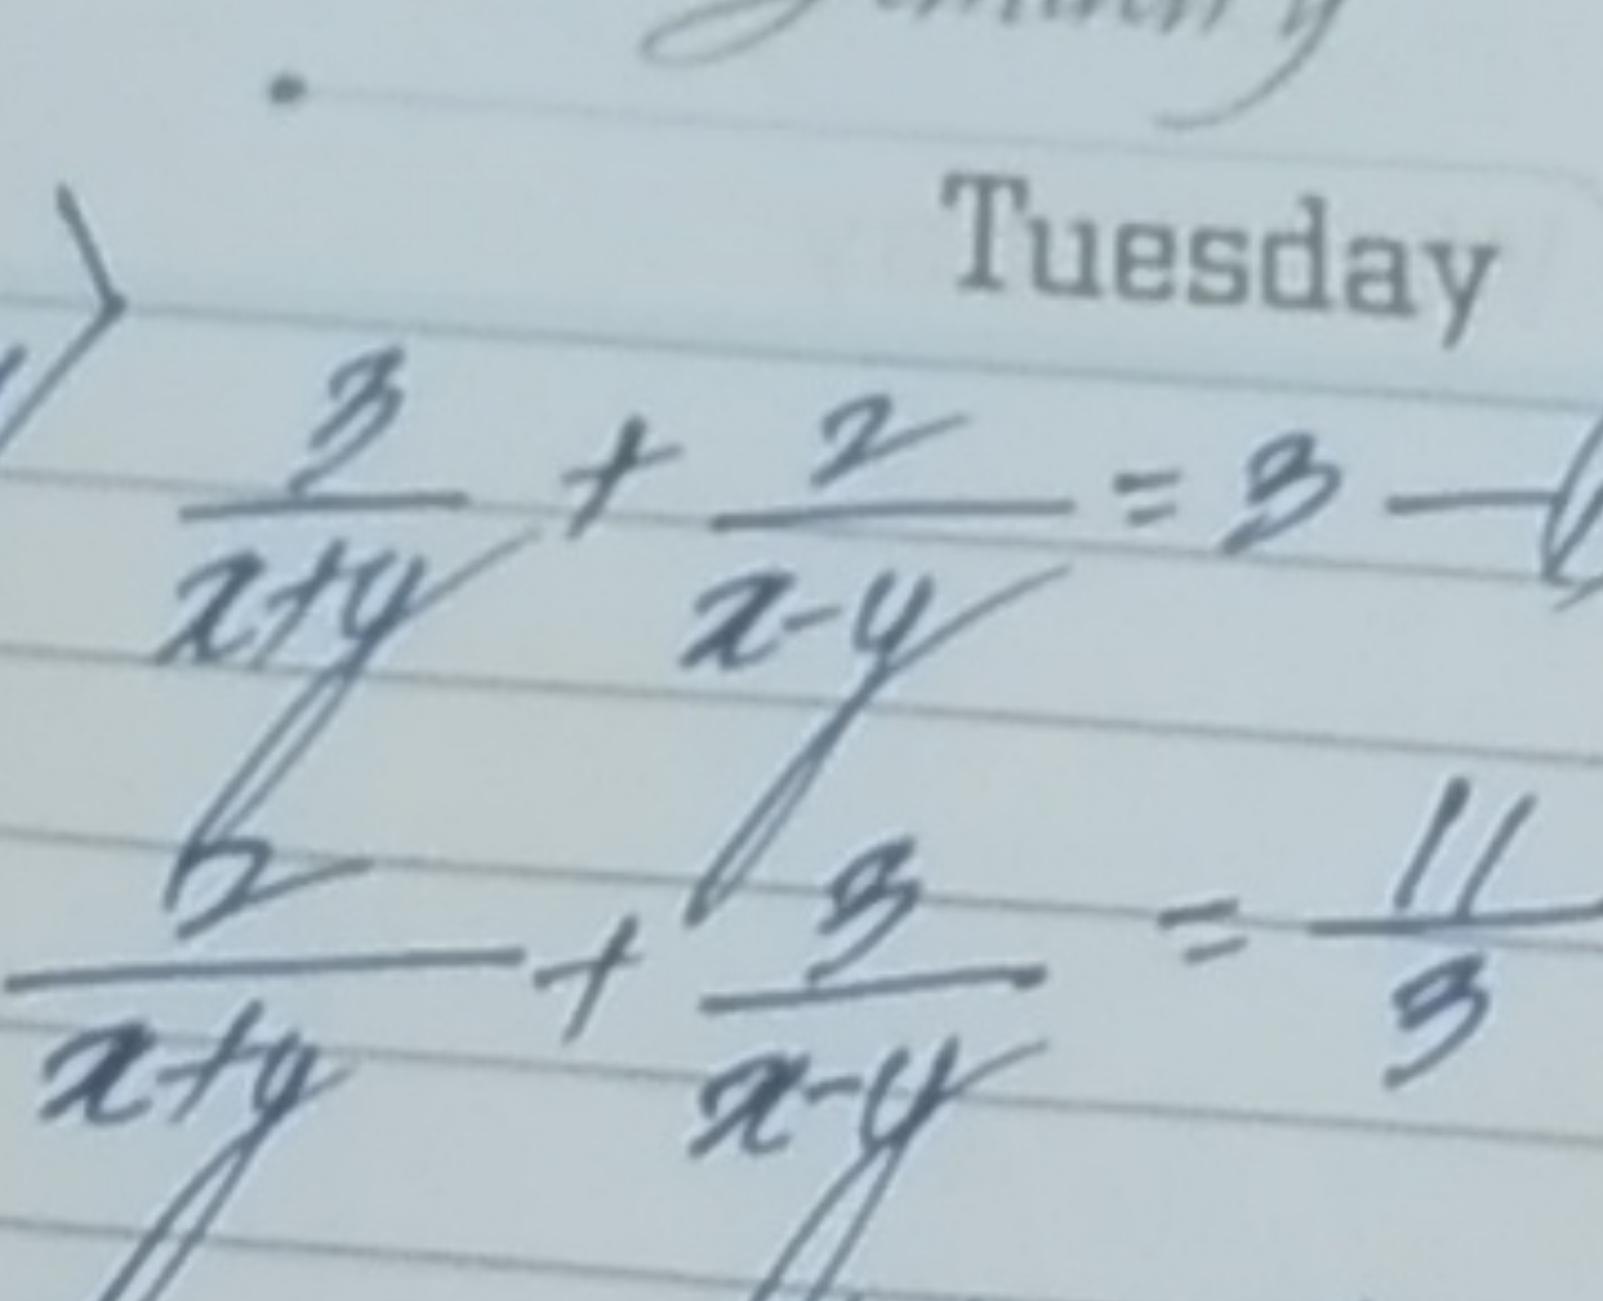 Tuesday
3/(x+y) + 2/(x-y) = 3 —
2/(x+y) + 3/(x-y) = 11/3